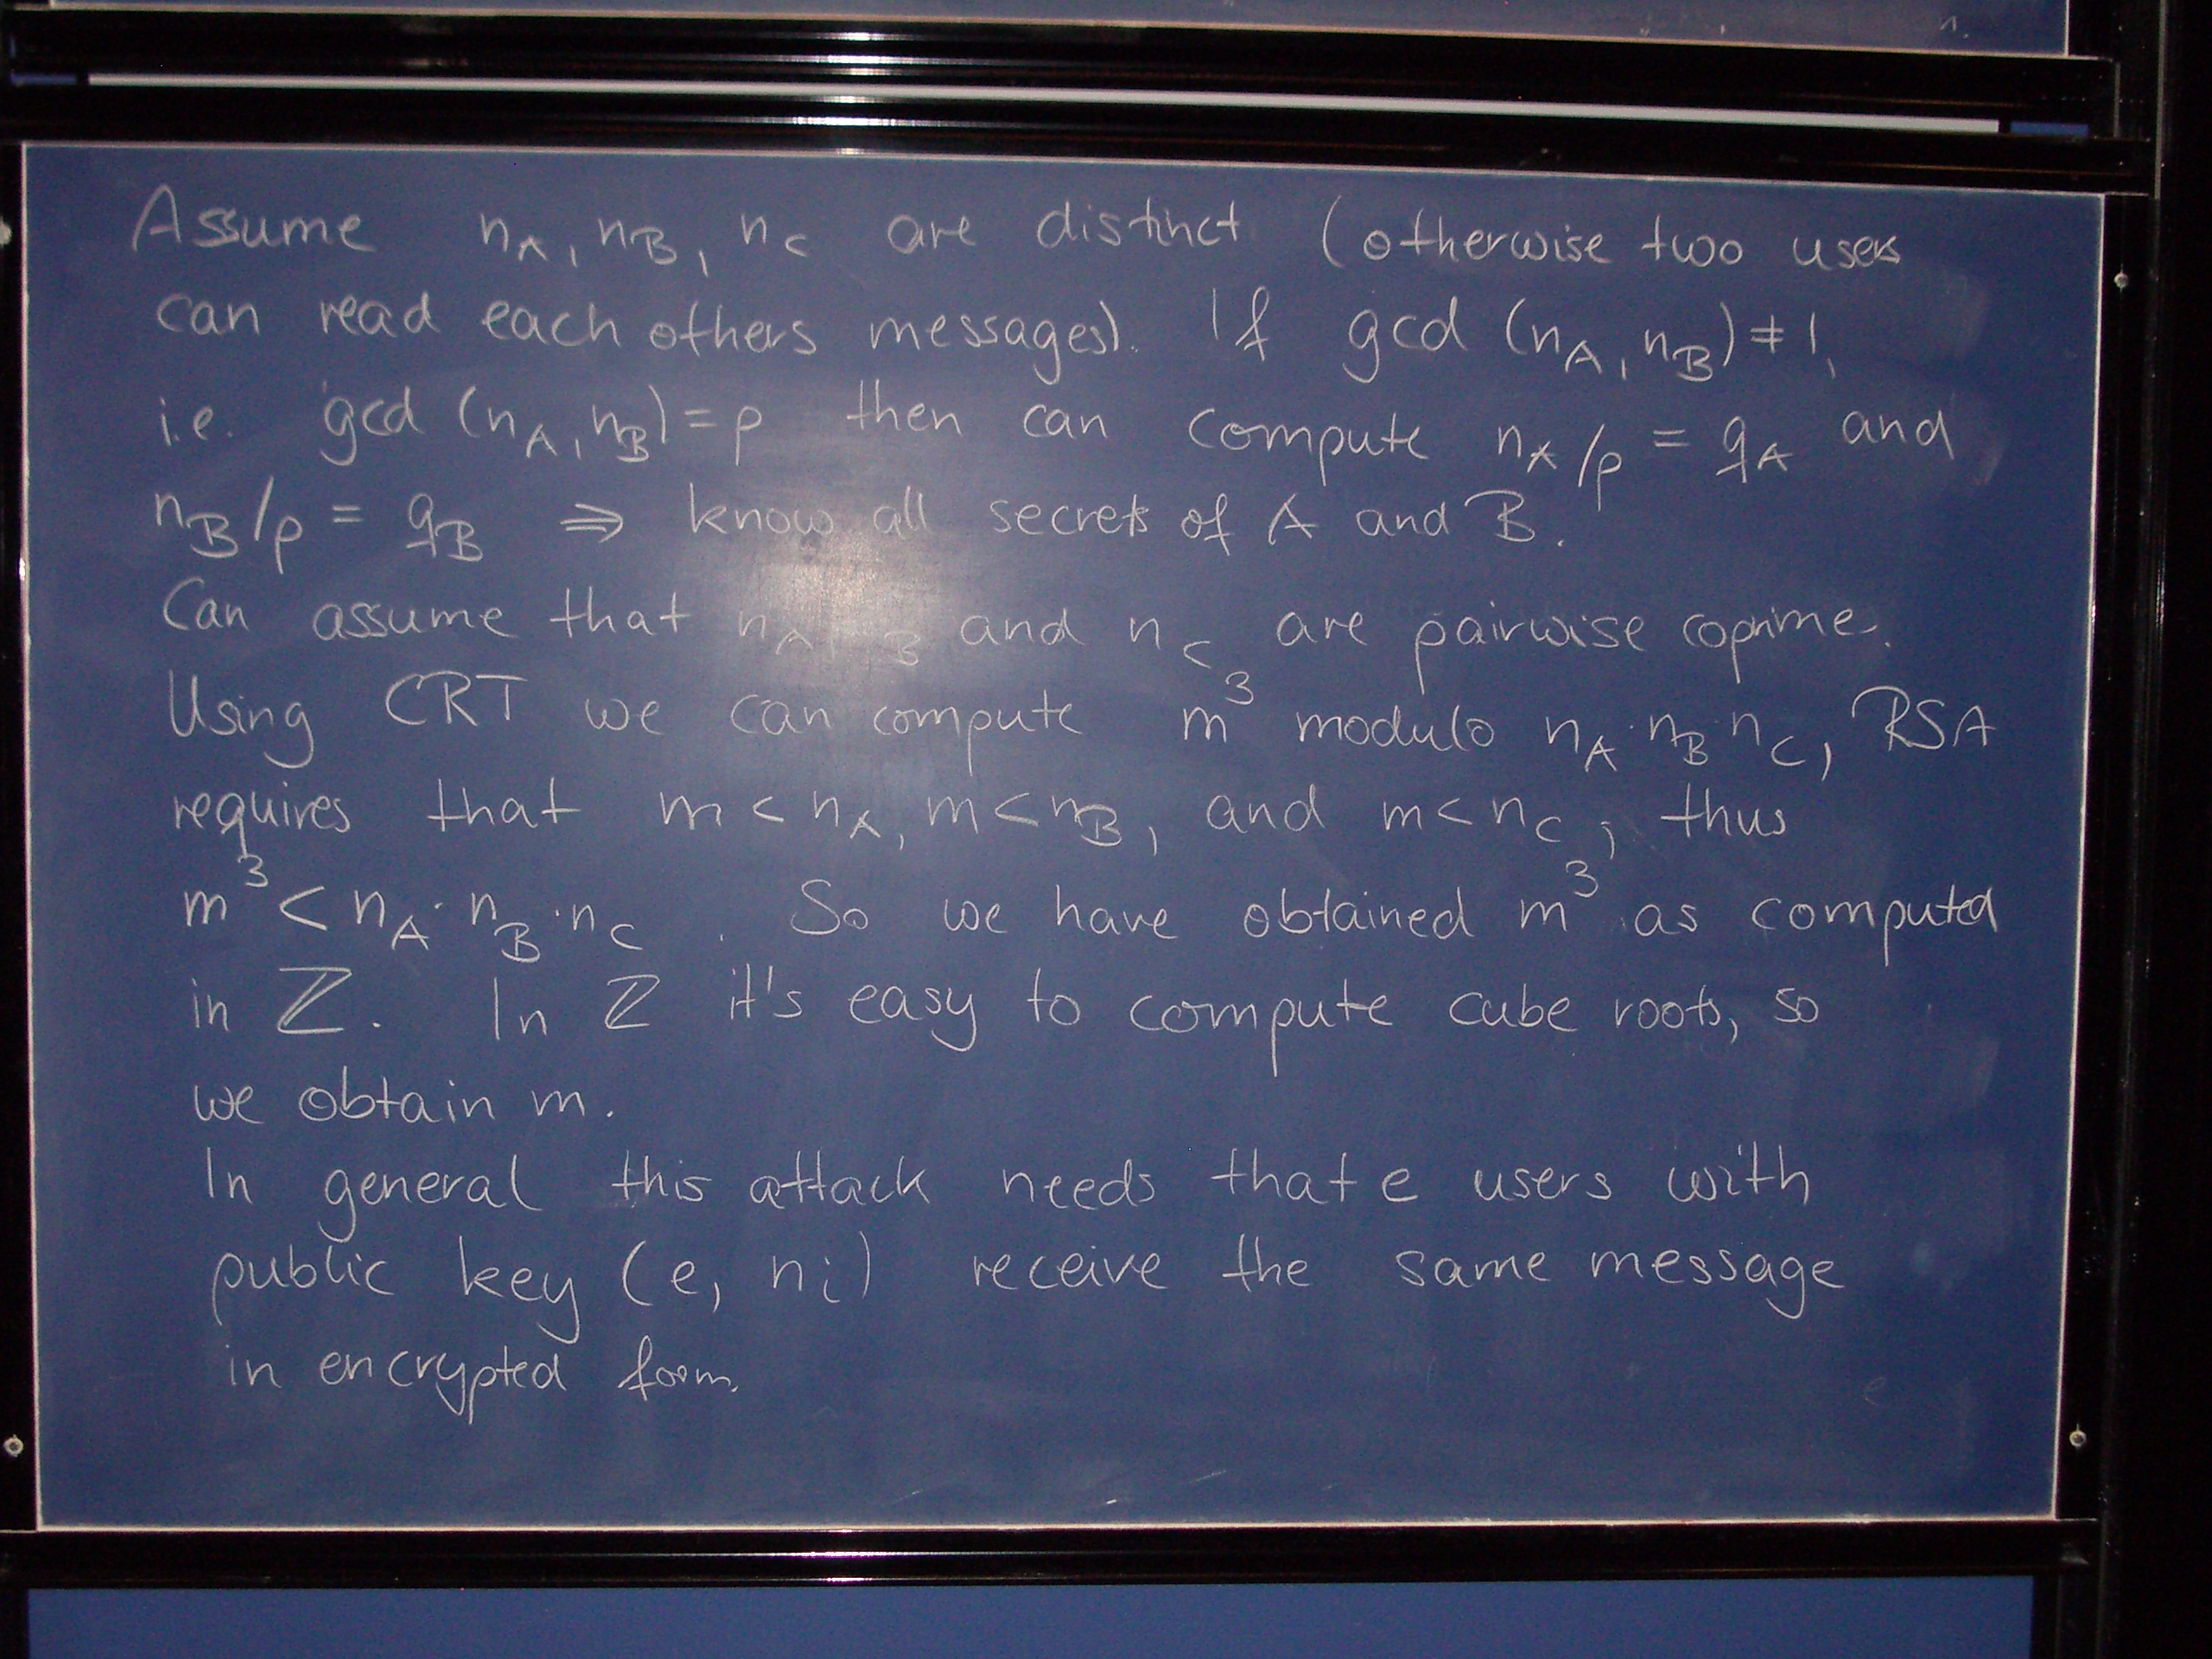 Assume n_A, n_B, n_C are distinct (otherwise two users
can read each others messages). If gcd (n_A, n_B) ≠ 1,
i.e. gcd (n_A, n_B) = p then can compute n_A/p = q_A and
n_B/p = q_B ⇒ know all secrets of A and B.
Can assume that n_A, n_B and n_C are pairwise coprime.
Using CRT we can compute m³ modulo n_A·n_B·n_C, RSA
requires that m < n_A, m < n_B, and m < n_C; thus
m³ < n_A·n_B·n_C. So we have obtained m³ as computed
in ℤ. In ℤ it's easy to compute cube roots, so
we obtain m.
In general this attack needs that e users with
public key (e, n_i) receive the same message
in encrypted form.